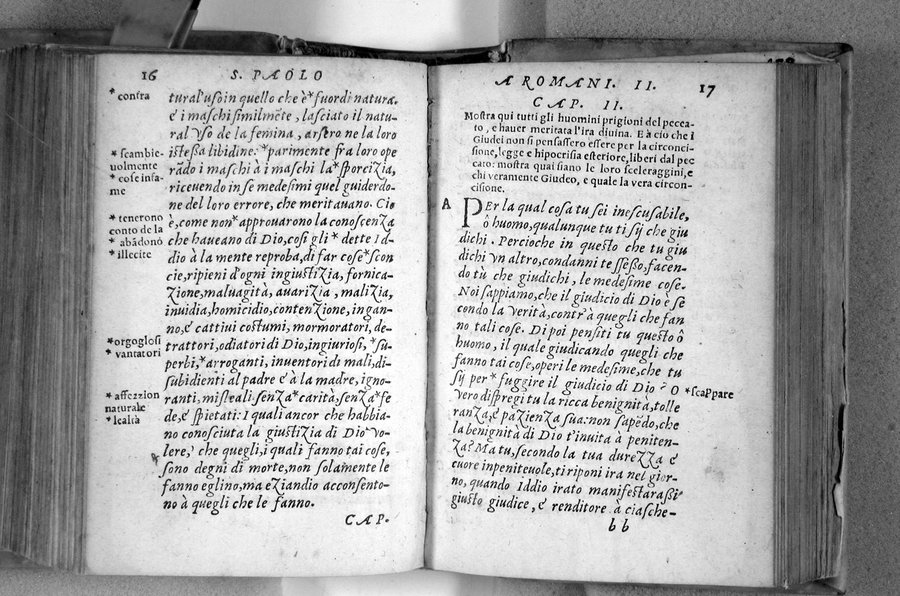 16 S. PAOLO
* contra
tural'uso in quello che è * fuor di natura.
é i maschi similmēte, lasciato il natu-
ral vso de la femina, arsero ne la loro
istessa libidine: * parimente fra loro ope
* scambie-
uolmente
rādo i maschi à i maschi la * sporcizia,
* cose infa-
me
ricevendo in se medesimi quel guiderdo-
ne del loro errore, che meritauano. Cio
* tenerono
conto de la
è, come non * approuarono la conoscenza
* abādonó
che haueano di Dio, cosi gli * dette Id-
* illecite
dio à la mente reproba, di far cose * scon
cie, ripieni d'ogni ingiustizia, fornica-
zione, maluagità, auarizia, malizia,
inuidia, homicidio, contenzione, ingan-
no, é cattiui costumi, mormoratori, de-
*orgoglosi
trattori, odiatori di Dio, ingiuriosi, * su-
* vantatori
perbi, * arroganti, inuentori di mali, di-
subidienti al padre é à la madre, igno-
* affezzion
naturale
ranti, misleali senza * carità, senza * fe
* lealtà
de, é spietati: I quali ancor che habbia-
no conosciuta la giustizia di Dio vo-
lere, che quegli, i quali fanno tai cose,
sono degni di morte, non solamente le
fanno eglino, ma eziandio acconsento-
no à quegli che le fanno.
CAP.
A ROMANI. II. 17
CAP. II.
Mostra qui tutti gli huomini prigioni del pecca-
to, e hauer meritata l'ira diuina. E à cio che i
Giudei non si pensassero essere per la circonci-
sione, legge e hipocrisia esteriore, liberi dal pec
cato: mostra quai siano le loro sceleraggini, e
chi veramente Giudeo, e quale la vera circon-
cisione.
A
PEr la qual cosa tu sei inescusabile,
ô huomo, qualunque tu ti sÿ che giu
dichi. Percioche in questo che tu giu
dichi vn altro, condanni te stesso, facen-
do tù che giudichi, le medesime cose.
Noi sappiamo, che il giudicio di Dio è se
condo la verità, contr'à quegli che fan
no tali cose. Di poi pensiti tu questo ô
huomo, il quale giudicando quegli che
fanno tai cose, operi le medesime, che tu
sÿ per * fuggire il giudicio di Dio? O
*scappare
vero dispregi tu la ricca benignità, tolle
ranza, é pazienza sua: non sapēdo, che
la benignità di Dio t'inuita à peniten-
za? Ma tu, secondo la tua durezza é
cuore inpeniteuole, ti riponi ira nel gior-
no, quando Iddio irato manifestarassi
giusto giudice, é renditore à ciasche-
b b